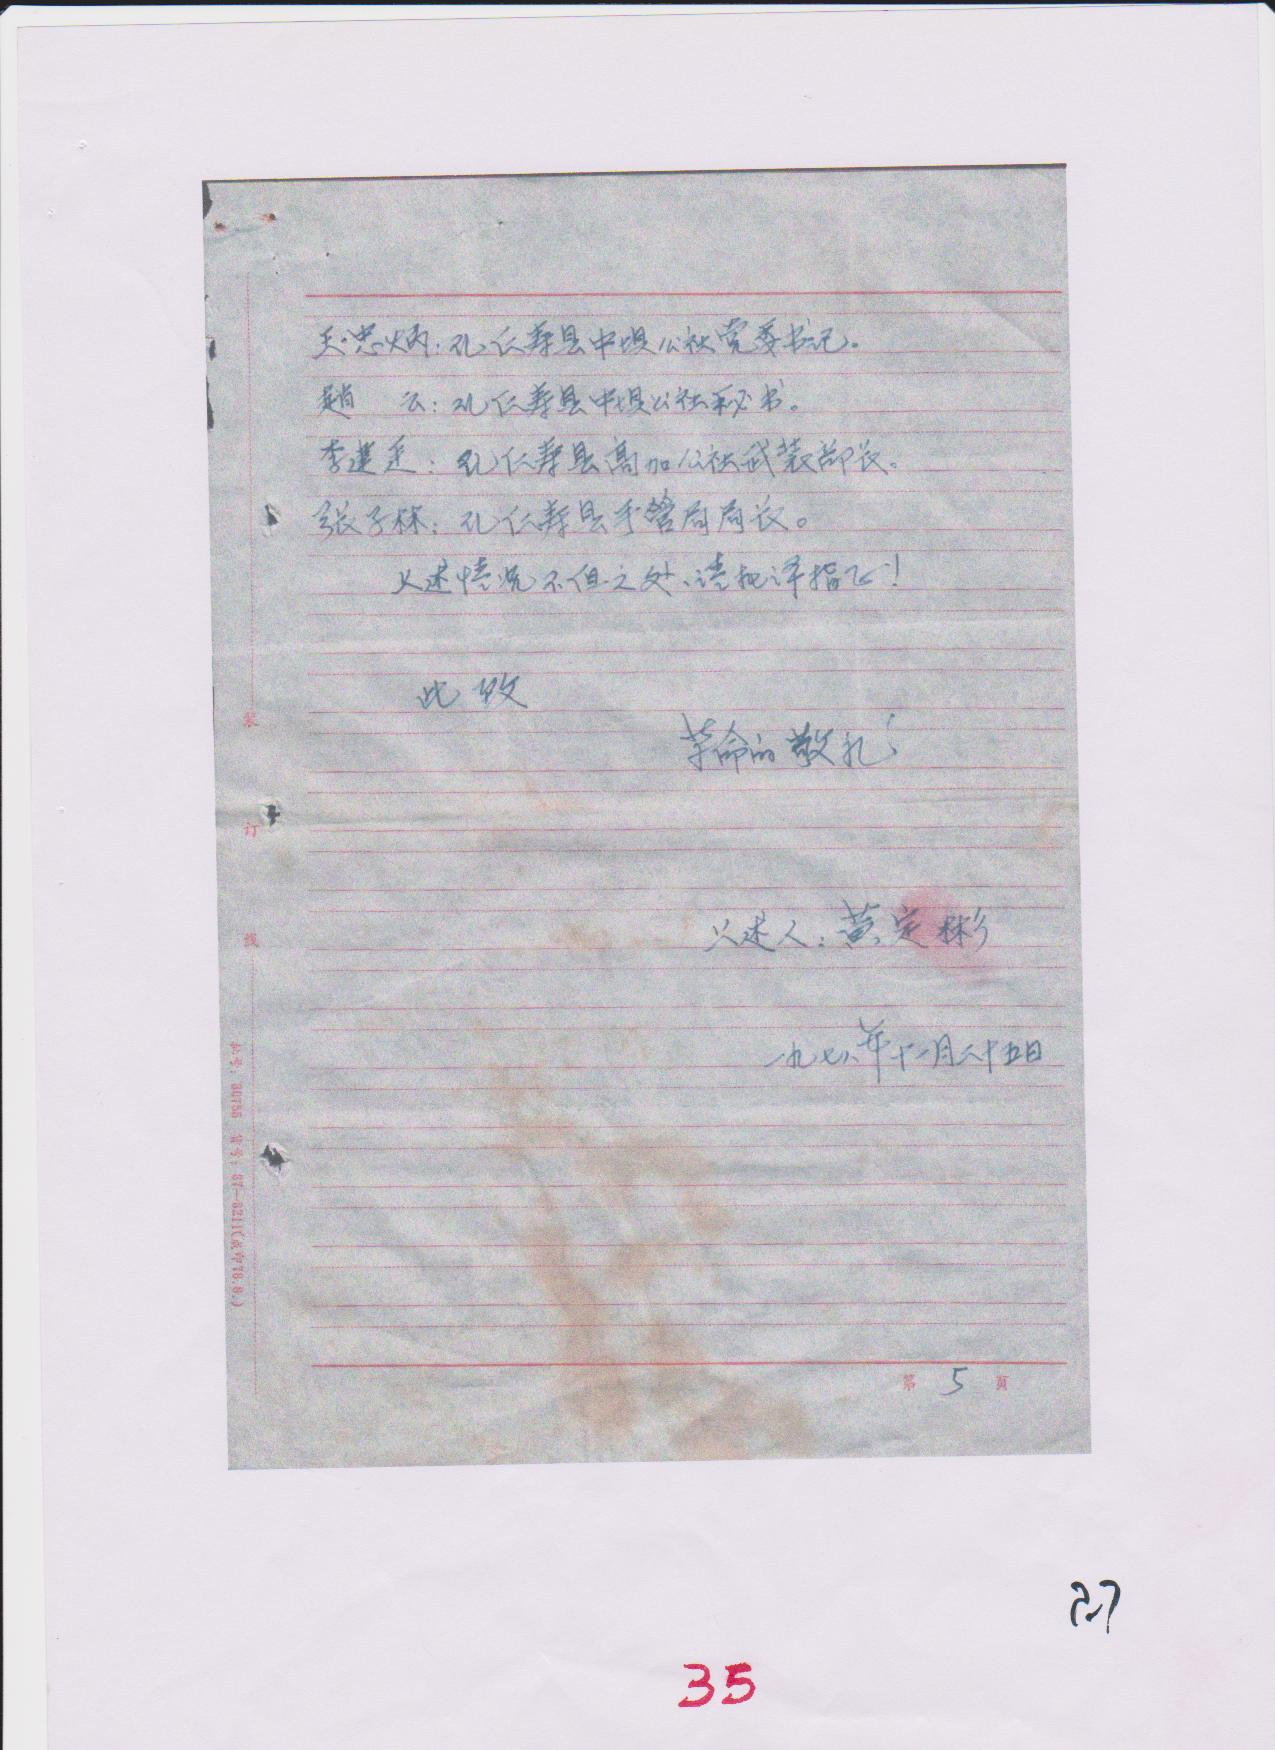 王忠炳：现仁寿县中坝公社党委书记。
赵 云：现仁寿县中坝公社秘书。
李：现仁寿县高加公社武装部长。
张子林：现仁寿县手管局局长。
上述情况不但之处、请批评指正！
此致
革命的敬礼！
上述人：黄定彬
一九七八年十一月二十五日
装
订
线
第 5 页
27
35